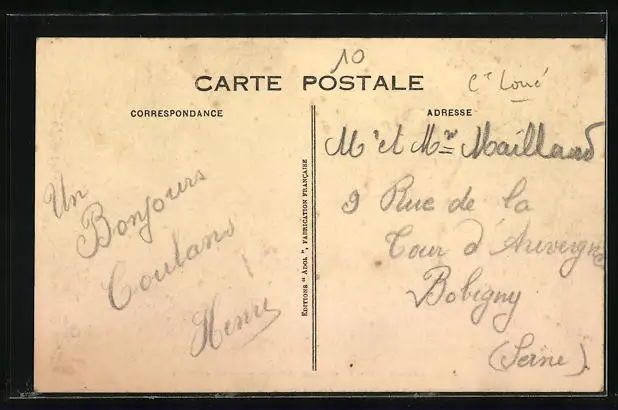 10
CARTE POSTALE
Cⁿ Loué
CORRESPONDANCE
ADRESSE
Mʳ et Mᵐᵉ Maillard
9 Rue de la
Tour d'Auvergne
Bobigny
(Seine)
Un
Bonjours
Coulans
Henri
EDITIONS "ADOL", FABRICATION FRANÇAISE